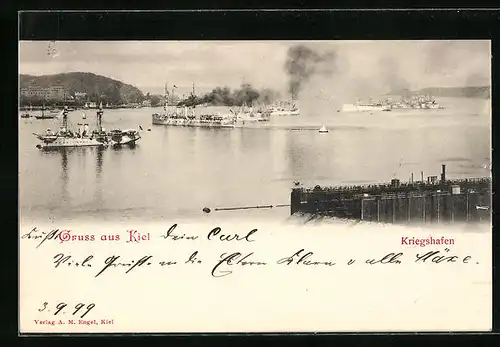 Gruss aus Kiel dein Carl
Kriegshafen
Viele Grüße an die Eltern u alle
3.9.99
Verlag A. M. Engel, Kiel